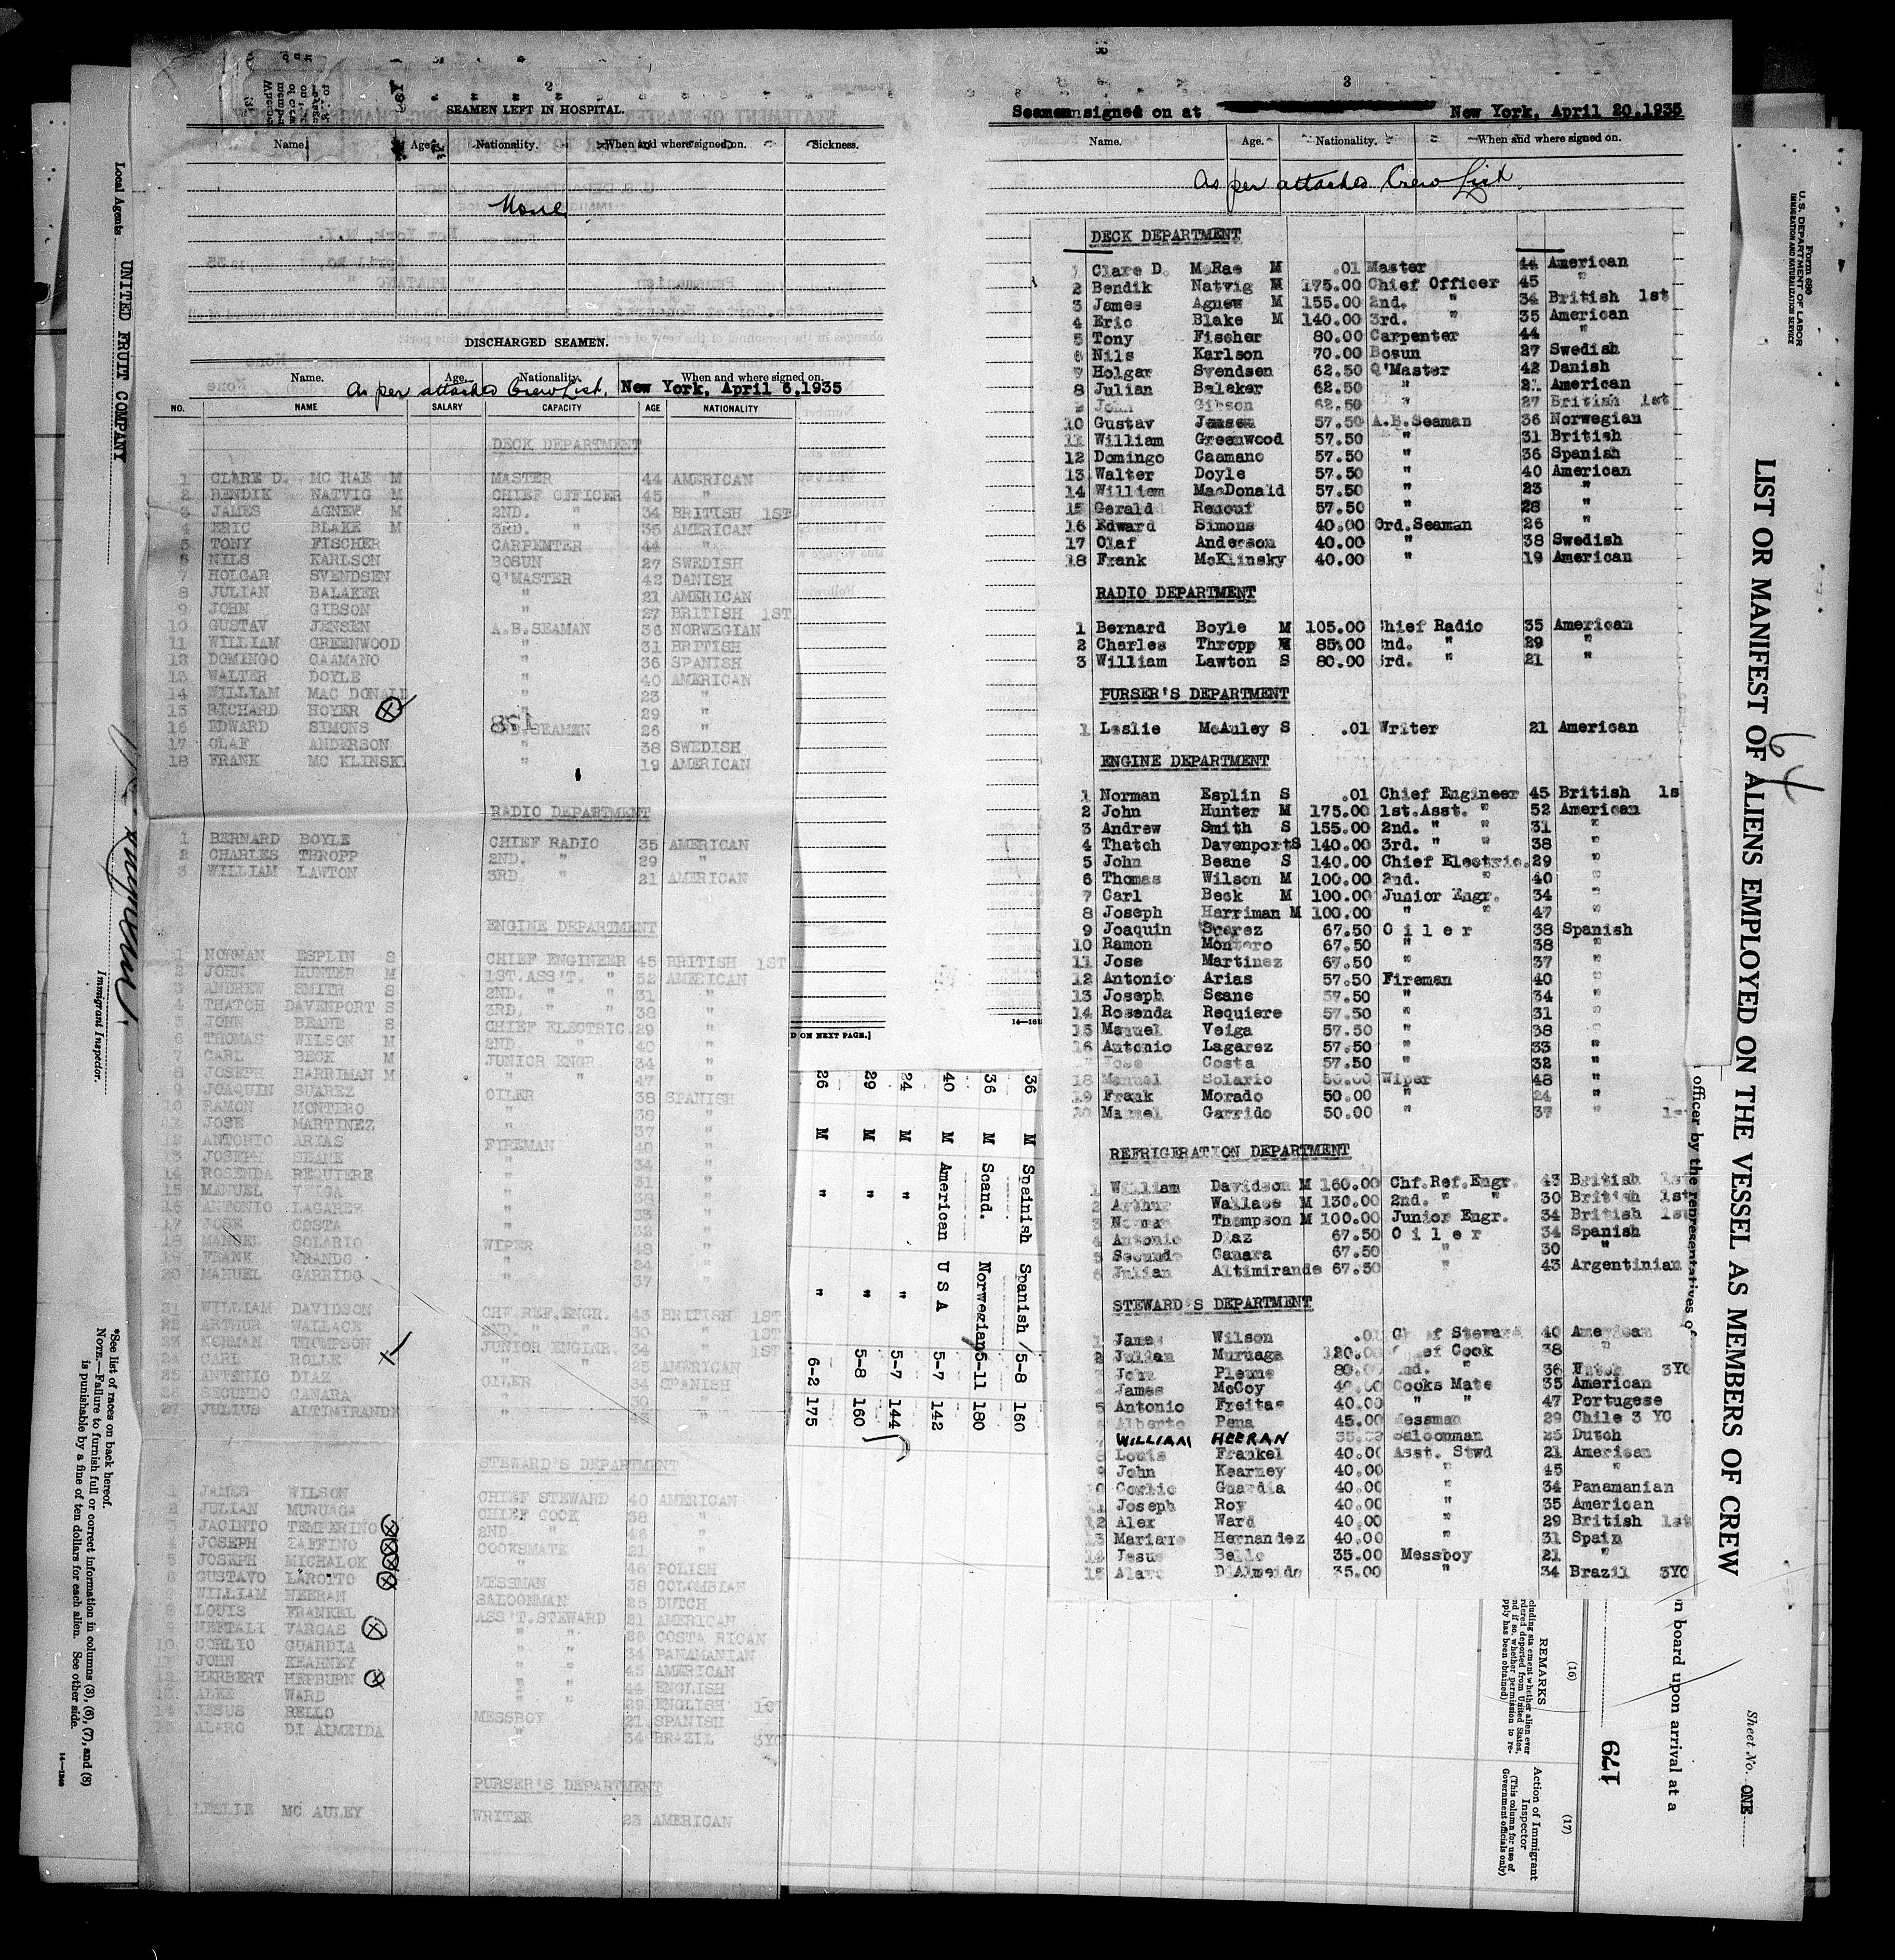 2
SEAMEN LEFT IN HOSPITAL.
Name. Age. Nationality. When and where signed on. Sickness.
None
DISCHARGED SEAMEN.
Name. Age. Nationality. When and where signed on.
As per attached Crew List. New York, April 6,1935
NO. NAME SALARY CAPACITY AGE NATIONALITY
DECK DEPARTMENT
1 CLARE D. MC RAE M MASTER 44 AMERICAN
2 BENDIK NATVIG M CHIEF OFFICER 45 "
3 JAMES AGNEW M 2ND. " 34 BRITISH 1ST
4 ERIC BLAKE M 3RD. " 35 AMERICAN
5 TONY FISCHER CARPENTER 44 "
6 NILS KARLSON BOSUN 27 SWEDISH
7 HOLGAR SVENDSEN Q'MASTER 42 DANISH
8 JULIAN BALAKER " 21 AMERICAN
9 JOHN GIBSON " 27 BRITISH 1ST
10 GUSTAV JENSEN A.B.SEAMAN 36 NORWEGIAN
11 WILLIAM GREENWOOD " 31 BRITISH
12 DOMINGO CAAMANO " 36 SPANISH
13 WALTER DOYLE " 40 AMERICAN
14 WILLIAM MAC DONALD " 23 "
15 RICHARD HOYER " 29 "
16 EDWARD SIMONS SEAMEN 26 "
17 OLAF ANDERSON " 38 SWEDISH
18 FRANK MC KLINSK " 19 AMERICAN
RADIO DEPARTMENT
1 BERNARD BOYLE CHIEF RADIO 35 AMERICAN
2 CHARLES THROPP 2ND. " 29 "
3 WILLIAM LAWTON 3RD. " 21 AMERICAN
ENGINE DEPARTMENT
1 NORMAN ESPLIN S CHIEF ENGINEER 45 BRITISH 1ST
2 JOHN HUNTER M 1ST.ASS'T. " 52 AMERICAN
3 ANDREW SMITH S 2ND. " " 31 "
4 THATCH DAVENPORT S 3RD. " " 38 "
5 JOHN BEANE S CHIEF ELECTRIC. 29 "
6 THOMAS WILSON M 2ND " 40 "
7 CARL BECK M JUNIOR ENGR. 34 "
8 JOSEPH HARRIMAN M " " 47 "
9 JOAQUIN SUAREZ OILER 38 SPANISH
10 RAMON MONTERO " 38 "
11 JOSE MARTINEZ " 37 "
12 ANTONIO ARIAS FIREMAN 40 "
13 JOSEPH SEANE " 34 "
14 ROSENDA REQUIERE " 31 "
15 MANUEL VEIGA " 38 "
16 ANTONIO LAGAREZ " 33 "
17 JOSE COSTA " 32 "
18 MANUEL SOLARIO WIPER 48 "
19 FRANK MRANDO " 24 "
20 MANUEL GARRIDO " 37 "
21 WILLIAM DAVIDSON CHF.REF.ENGR. 43 BRITISH 1ST
22 ARTHUR WALLACE 2ND. " " 30 " 1ST
23 NORMAN THOMPSON JUNIOR ENGINR. 34 " 1ST
24 CARL ROLLE " " 25 AMERICAN
25 ANTONIO DIAZ OILER 34 SPANISH
26 SEGUNDO CANARA " 30 "
27 JULIUS ALTIMIRANDE " 43 "
STEWARD'S DEPARTMENT
1 JAMES WILSON CHIEF STEWARD 40 AMERICAN
2 JULIAN MURUAGA CHIEF COOK 38 "
3 JACINTO TEMPERINO 2ND. " 46 "
4 JOSEPH ZAFFINO COOKSMATE 21 "
5 JOSEPH MICHALOK " 46 POLISH
6 GUSTAVO LAROTTO MESSMAN 38 COLOMBIAN
7 WILLIAM HEERAN SALOONMAN 25 DUTCH
8 LOUIS FRANKEL ASS'T.STEWARD 21 AMERICAN
9 NEFTALI VARGAS " " 26 COSTA RICAN
10 CORLIO GUARDIA " " 34 PANAMANIAN
11 JOHN KEARNEY " " 45 AMERICAN
12 HERBERT HEPBURN " " 44 ENGLISH
13 ALEX WARD " " 29 ENGLISH 1ST
14 JESUS BELLO MESSBOY 21 SPANISH
15 ALARO DI ALMEIDA " 34 BRAZIL 3YC
PURSER'S DEPARTMENT
1 LESLIE MC AULEY WRITER 23 AMERICAN
3
Seamen signed on at New York, April 20,1935
Name. Age. Nationality. When and where signed on.
As per attached Crew List.
DECK DEPARTMENT
1 Clare D. McRae M .01 Master 44 American
2 Bendik Natvig M 175.00 Chief Officer 45 "
3 James Agnew M 155.00 2nd. " 34 British 1st
4 Eric Blake M 140.00 3rd. " 35 American
5 Tony Fischer 80.00 Carpenter 44 "
6 Nils Karlson 70.00 Bosun 27 Swedish
7 Holgar Svendsen 62.50 Q'Master 42 Danish
8 Julian Balaker 62.50 " 21 American
9 John Gibson 62.50 " 27 British 1st
10 Gustav Jensen 57.50 A.B.Seaman 36 Norwegian
11 William Greenwood 57.50 " 31 British
12 Domingo Caamano 57.50 " 36 Spanish
13 Walter Doyle 57.50 " 40 American
14 William MacDonald 57.50 " 23 "
15 Gerald Renouf 57.50 " 28 "
16 Edward Simons 40.00 Ord.Seaman 26 "
17 Olaf Anderson 40.00 " 38 Swedish
18 Frank McKlinsky 40.00 " 19 American
RADIO DEPARTMENT
1 Bernard Boyle M 105.00 Chief Radio 35 American
2 Charles Thropp M 85.00 2nd. " 29 "
3 William Lawton S 80.00 3rd. " 21 "
PURSER'S DEPARTMENT
1 Leslie McAuley S .01 Writer 21 American
ENGINE DEPARTMENT
1 Norman Esplin S .01 Chief Engineer 45 British 1s
2 John Hunter M 175.00 1st.Asst. " 52 American
3 Andrew Smith S 155.00 2nd. " " 31 "
4 Thatch Davenport S 140.00 3rd. " " 38 "
5 John Beane S 140.00 Chief Electric. 29 "
6 Thomas Wilson M 100.00 2nd. " 40 "
7 Carl Beck M 100.00 Junior Engr. 34 "
8 Joseph Harriman M 100.00 " " 47 "
9 Joaquin Suarez 67.50 Oiler 38 Spanish
10 Ramon Montero 67.50 " 38 "
11 Jose Martinez 67.50 " 37 "
12 Antonio Arias 57.50 Fireman 40 "
13 Joseph Seane 57.50 " 34 "
14 Rosenda Requiere 57.50 " 31 "
15 Manuel Veiga 57.50 " 38 "
16 Antonio Lagarez 57.50 " 33 "
Jose Costa 57.50 " 32 "
18 Manuel Solario 50.00 Wiper 48 "
19 Frank Morado 50.00 " 24 "
20 Manuel Garrido 50.00 " 37 " 1st
REFRIGERATION DEPARTMENT
1 William Davidson M 160.00 Chf.Ref.Engr. 43 British 1st
2 Arthur Wallace M 130.00 2nd. " " 30 British 1st
3 Norman Thompson M 100.00 Junior Engr. 34 British 1st
4 Antonio Diaz 67.50 Oiler 34 Spanish
5 Secundo Canara 67.50 30 "
6 Julian Altimirande 67.50 " 43 Argentinian
STEWARD'S DEPARTMENT
1 James Wilson .01 Chief Steward 40 American
2 Julian Muruaga 120.00 Chief Cook 38 "
3 John Pleune 80.00 2nd. " 36 Dutch 3YC
James McCoy 40.00 Cooks Mate 35 American
5 Antonio Freitas 40.00 " " 47 Portugese
6 Alberto Pena 45.00 Messman 29 Chile 3 YC
7 WILLIAM HEERAN 35.00 Saloonman 25 Dutch
8 Louis Frankel 40.00 Asst. Stwd 21 American
9 John Kearney 40.00 " 45 "
10 Corlio Guardia 40.00 " 34 Panamanian
11 Joseph Roy 40.00 " 35 American
12 Alex Ward 40.00 " 29 British 1st
13 Mariano Hernandez 40.00 " 31 Spain
14 Jesus Bello 35.00 Messboy 21 "
15 Alaro DiAlmeida 35.00 " 34 Brazil 3YC
D ON NEXT PAGE.]
36 M Spainish Spanish 5-8 160
36 M Scand. Norwegian 5-11 180
40 M American U S A 5-7 142
24 M " " 5-7 144
29 M " " 5-8 160
26 M " " 6-2 175
Local Agents UNITED FRUIT COMPANY
Immigrant Inspector.
*See list of races on back hereof.
NOTE.—Failure to furnish full or correct information in columns (3), (6), (7), and (8)
is punishable by a fine of ten dollars for each alien. See other side.
14—1240
Form 680
U. S. DEPARTMENT OF LABOR
IMMIGRATION AND NATURALIZATION SERVICE
64
LIST OR MANIFEST OF ALIENS EMPLOYED ON THE VESSEL AS MEMBERS OF CREW
Sheet No. ONE
officer by the representatives of
n board upon arrival at a
179
(16)
REMARKS
(17)
Action of Immigrant
Inspector
(This column for use of
Government officials only)